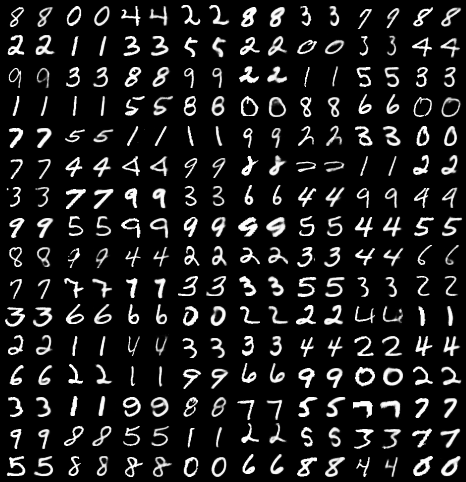 8 8 0 0 4 4 2 2 8 8 3 3 7 9 8 8
2 2 1 1 3 3 5 5 2 2 0 0 3 3 4 4
9 9 3 3 8 8 9 9 2 2 1 1 5 5 3 3
1 1 1 1 5 5 8 8 0 0 8 8 6 6 0 0
7 7 5 5 1 1 1 1 9 9 2 2 3 3 0 0
7 7 4 4 4 4 9 9 8 8 2 2 1 1 2 2
3 3 7 7 9 9 3 3 6 6 4 4 9 9 9 9
9 9 5 5 9 9 9 9 9 9 5 5 4 4 5 5
8 8 9 9 4 4 2 2 2 2 3 3 4 4 6 6
7 7 7 7 7 7 3 3 3 3 5 5 3 3 2 2
3 3 6 6 6 6 0 0 2 2 2 2 4 4 1 1
2 2 1 1 4 4 3 3 3 3 4 4 2 2 4 4
6 6 2 2 1 1 9 9 6 6 9 9 0 0 2 2
3 3 1 1 9 9 8 8 7 7 5 5 7 7 7 7
9 9 8 8 5 5 1 1 2 2 5 5 3 3 7 7
5 5 8 8 8 8 0 0 6 6 8 8 4 4 0 0